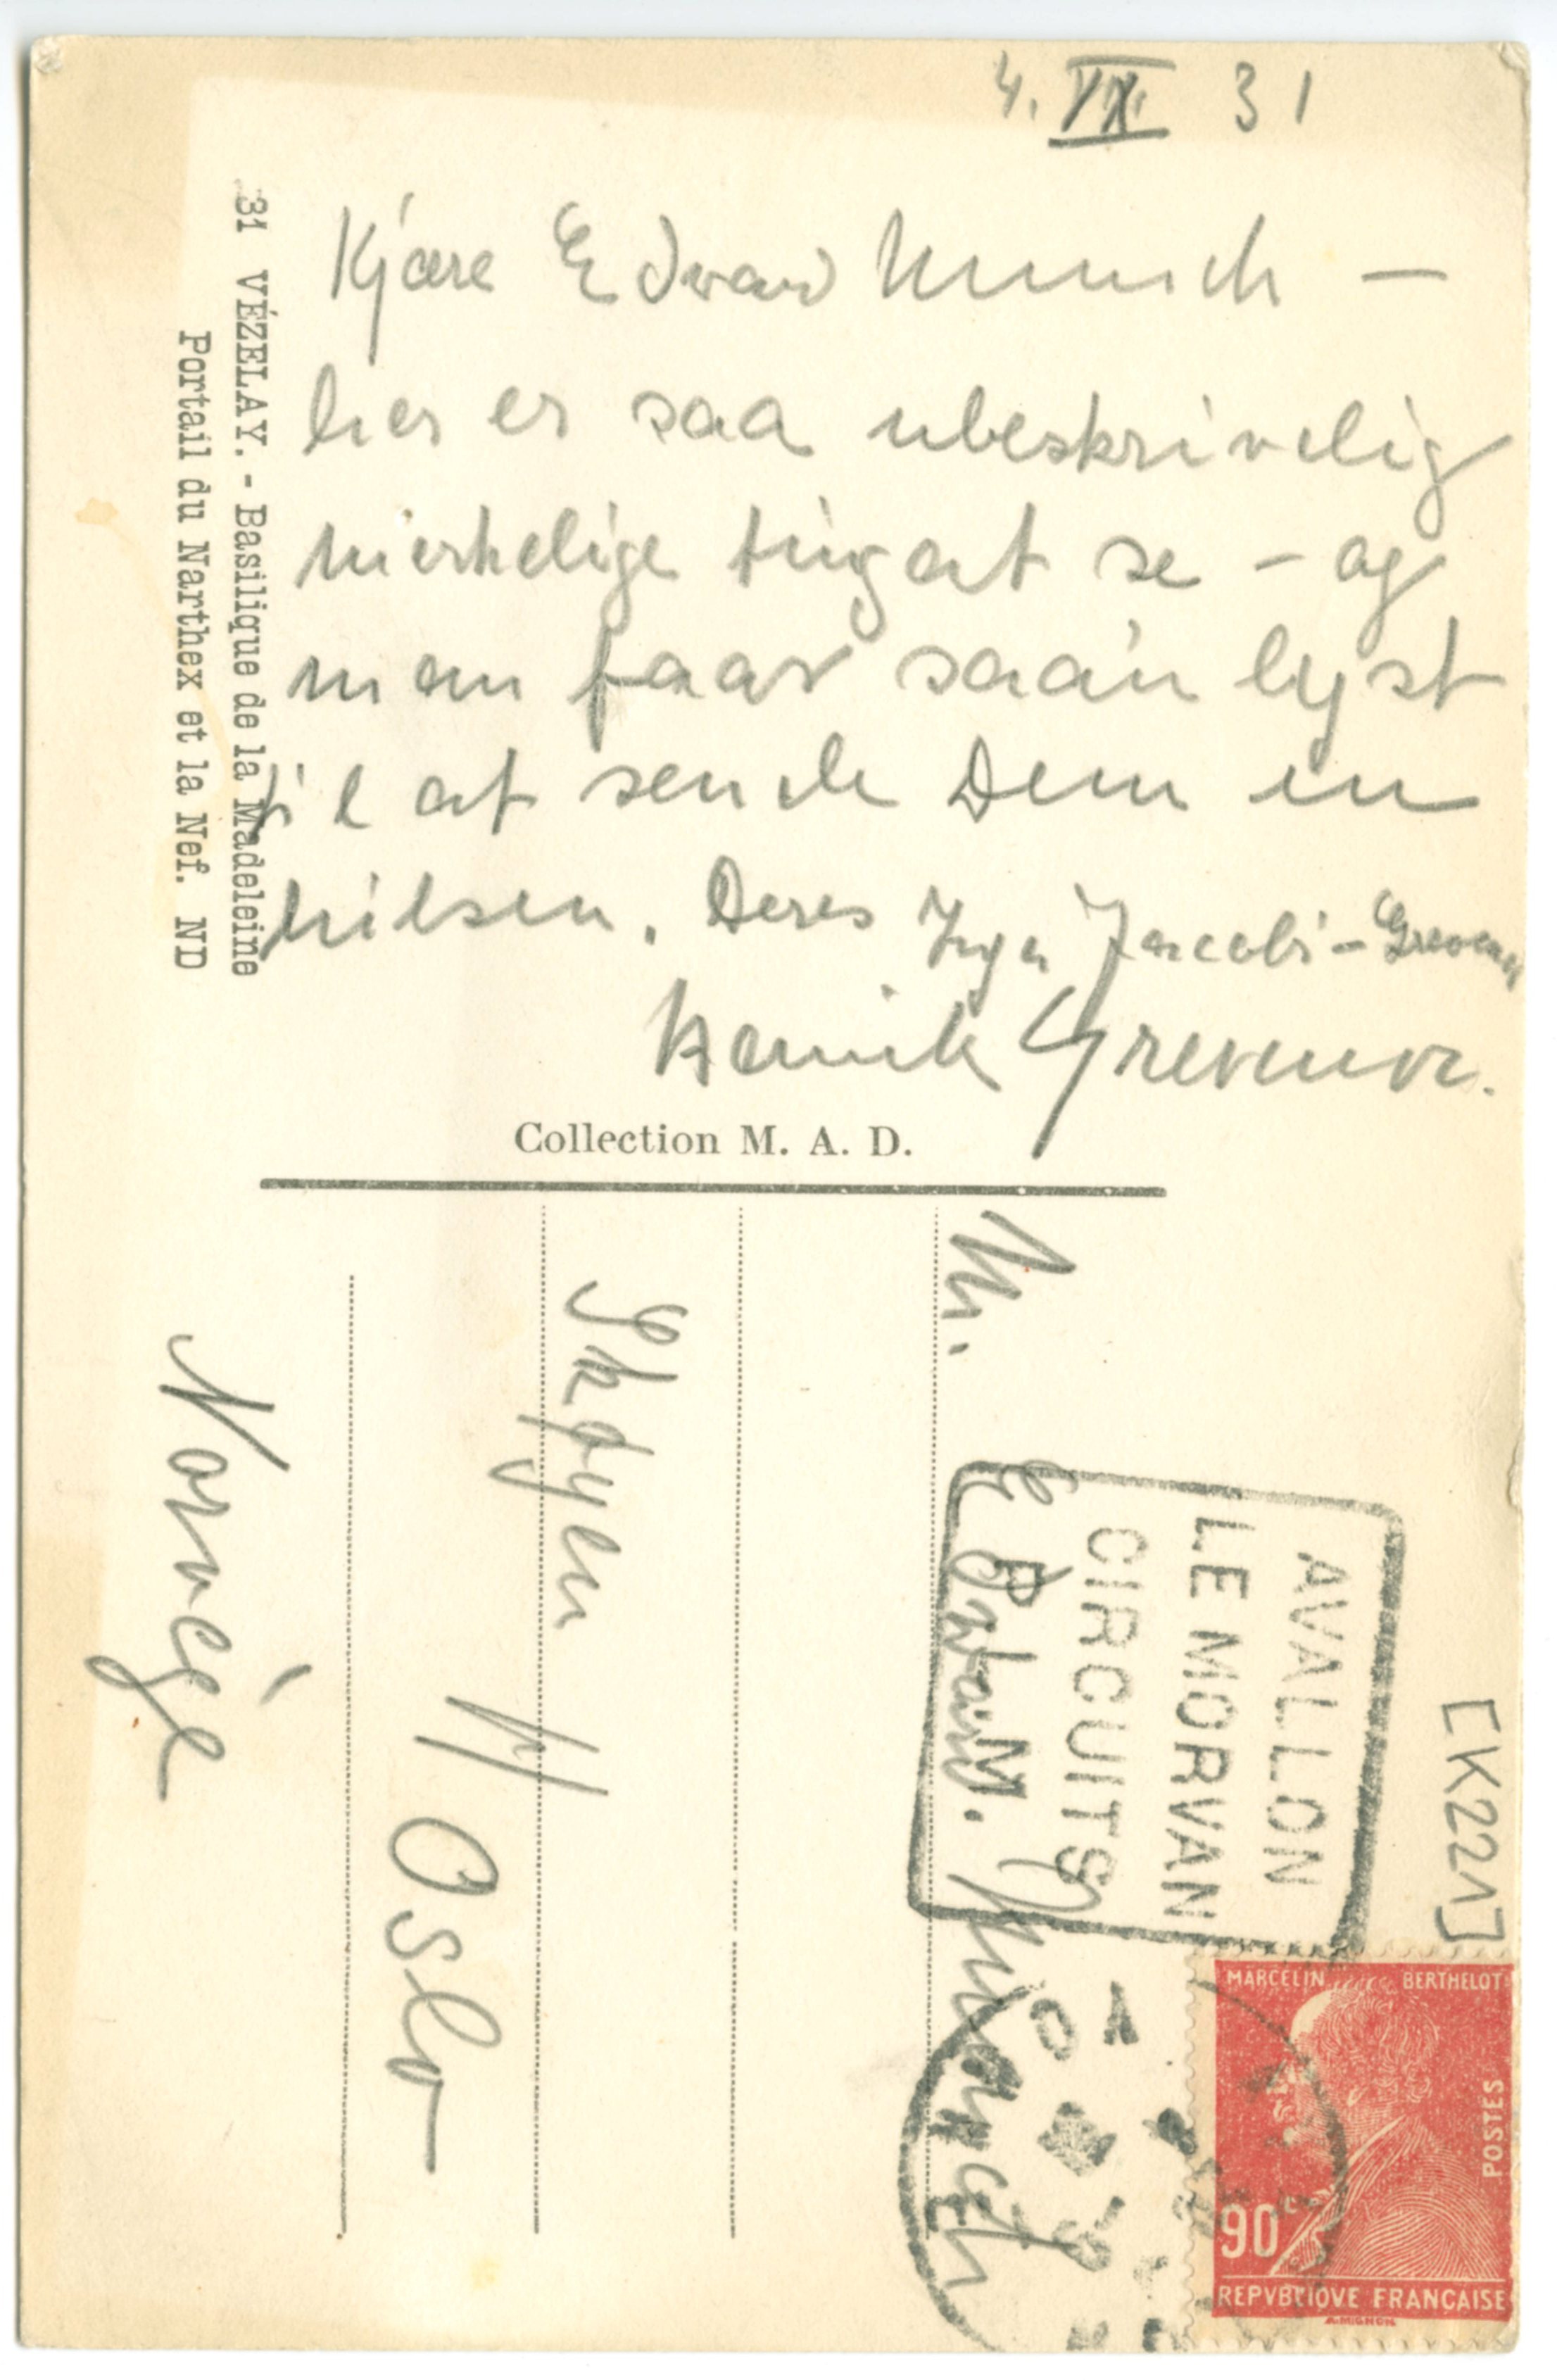 4. IX 31
Kjære Edvard Munch —
her er saa ubeskrivelig
merkelige ting at se – og
man faar saan lyst
til at sende Dem en
hilsen. Deres Inga Jacobi-Grevenor
Henrik Grevenor.
31 VÉZELAY. - Basilique de la Madeleine
Portail du Narthex et la Nef. ND
Collection M. A. D.
[K221]
AVALLON
LE MORVAN
CIRCUITS
P.L.M.
Mr. Edvard Munch
Skøyen
Oslo
Norvège
MARCELIN BERTHELOT
POSTES
90c
REPVBLIQVE FRANÇAISE
A.MIGNON